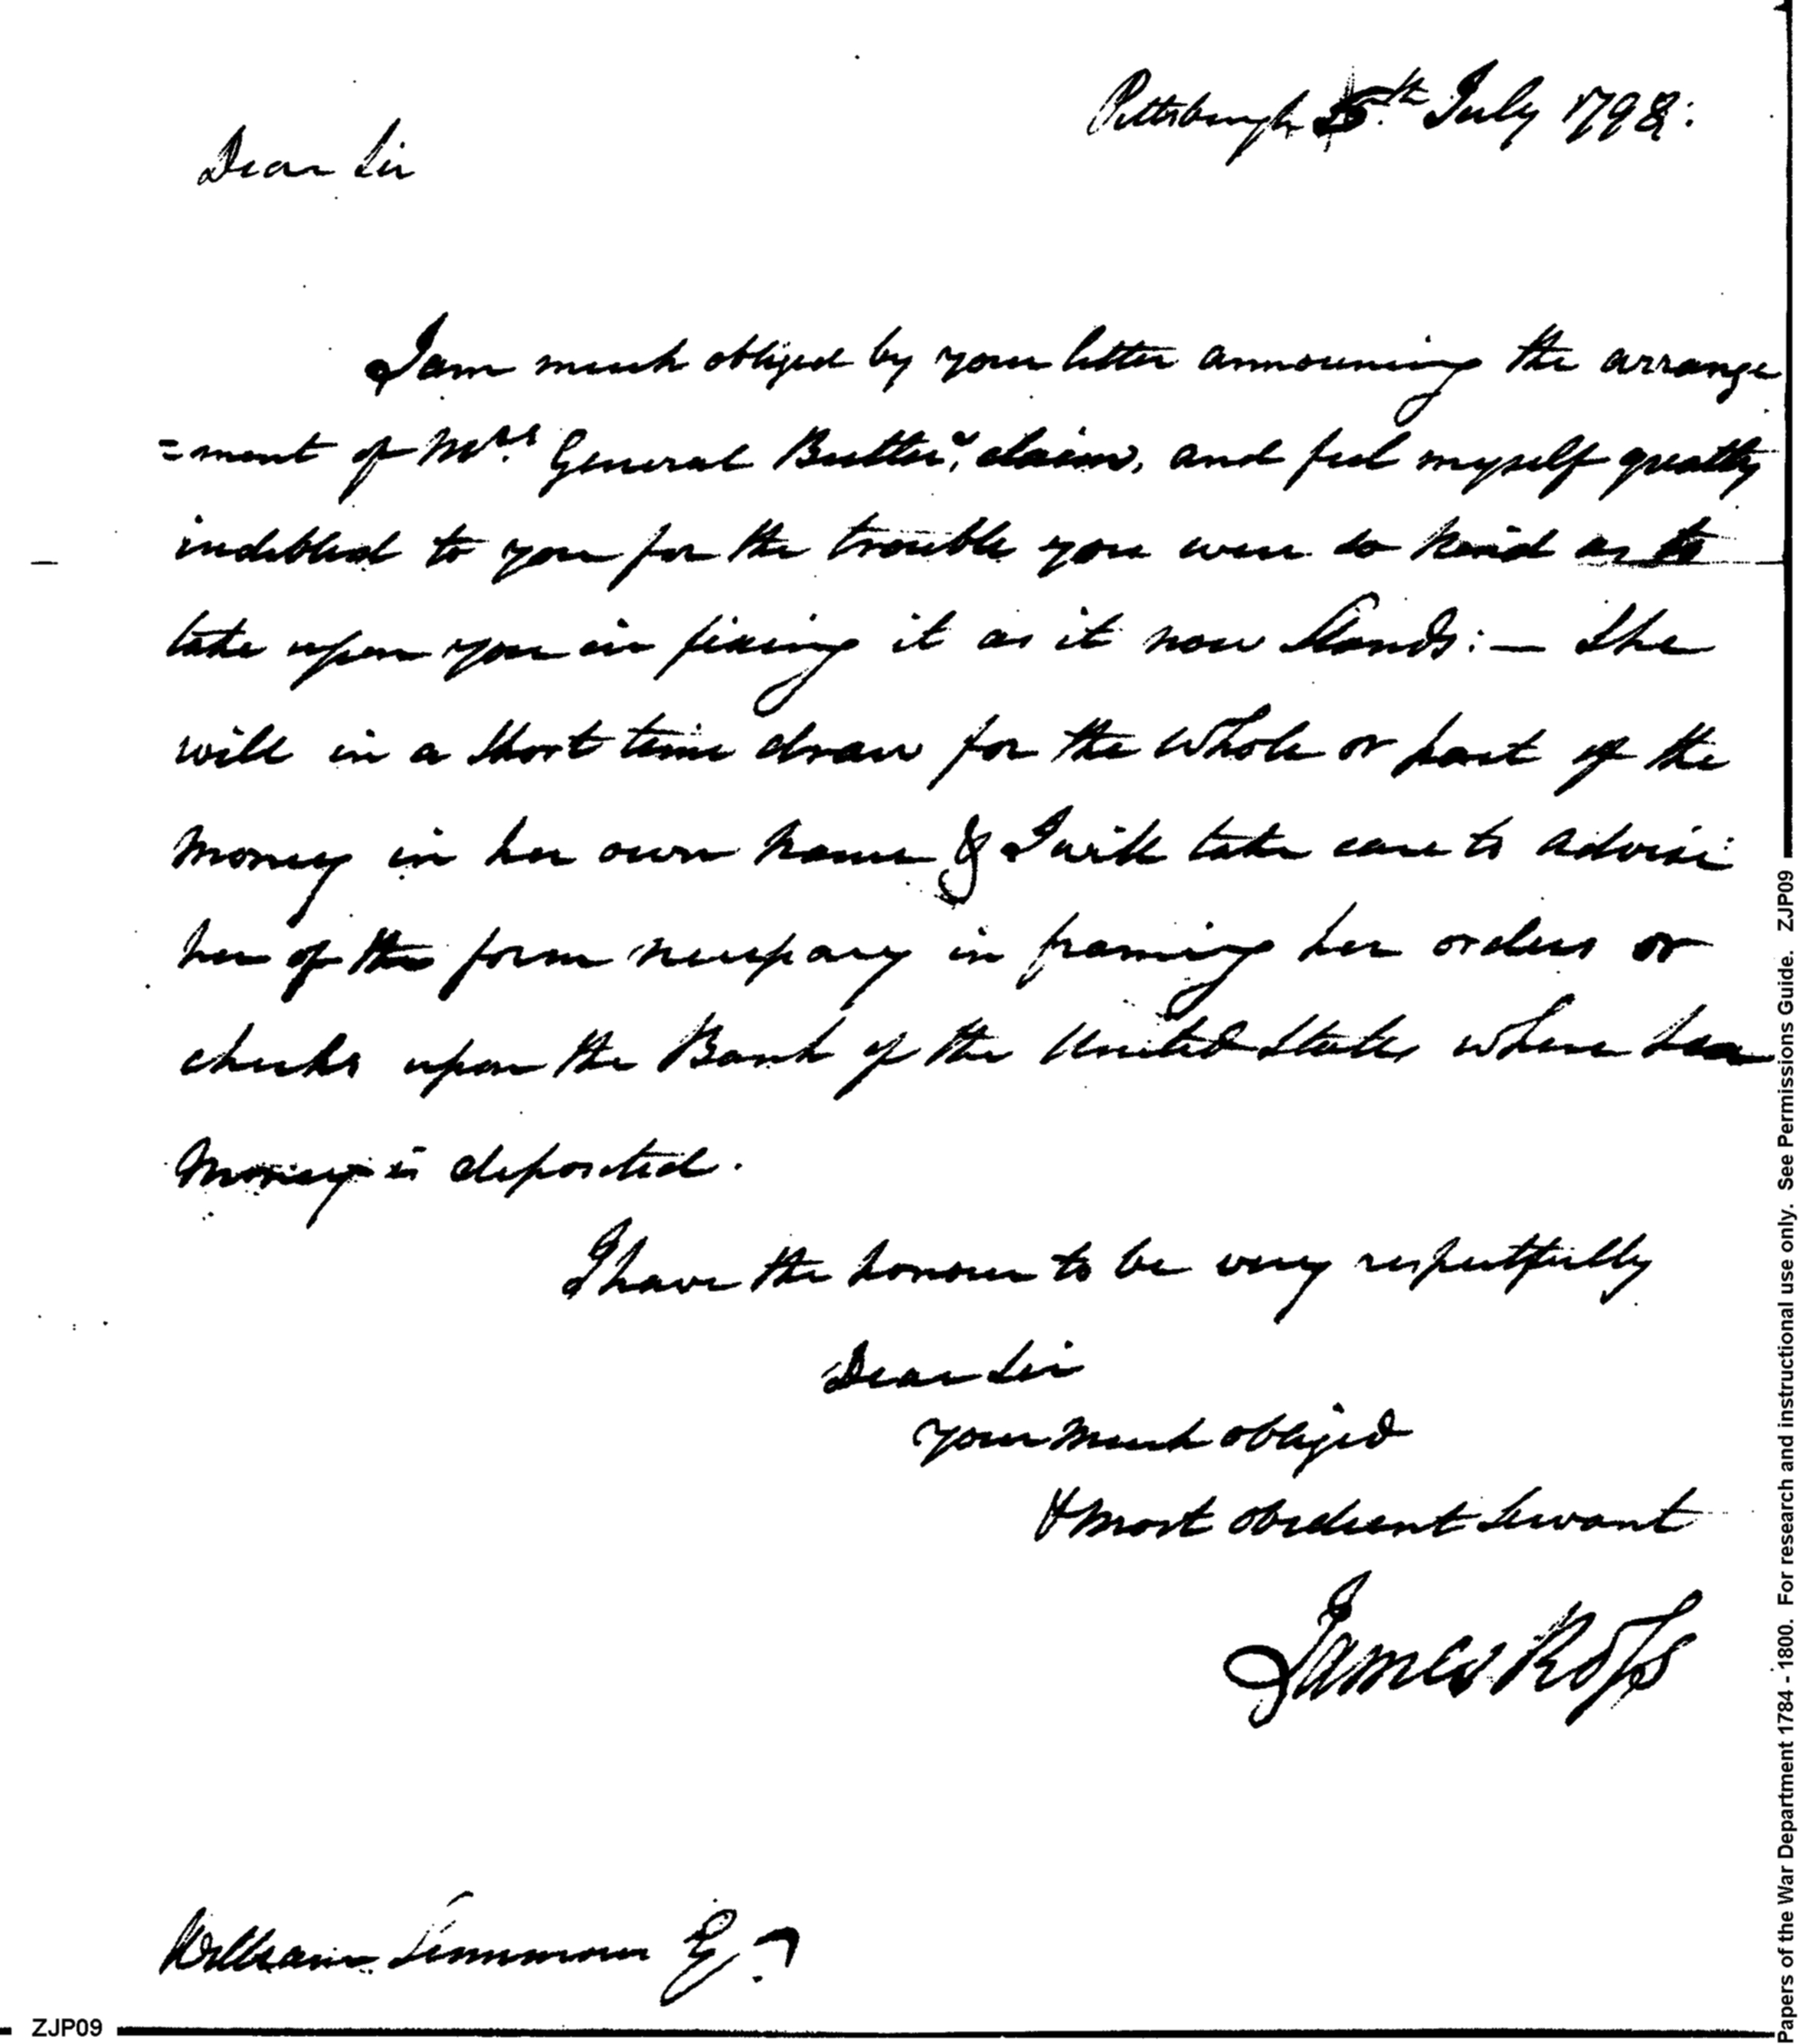 Pittsburgh 5th July 1798:
Dear Sir
I am much obliged by your letter announcing the arrange
=ment of Mrs. General Butler's claim, and feel myself greatly
indebted to you for the trouble you were so kind as to
take upon you in fixing it as it now stands: — She
will in a short time draw for the whole or part of the
money in her own name & I will take care to advise
her of the form necessary in framing her orders or
checks upon the Bank of the United States where her
money is deposited.
I have the honour to be very respectfully
Dear Sir
your much obliged
& most obedient Servant
James Ross
William Simmons Esq
ZJP09
Papers of the War Department 1784 - 1800. For research and instructional use only. See Permissions Guide. ZJP09